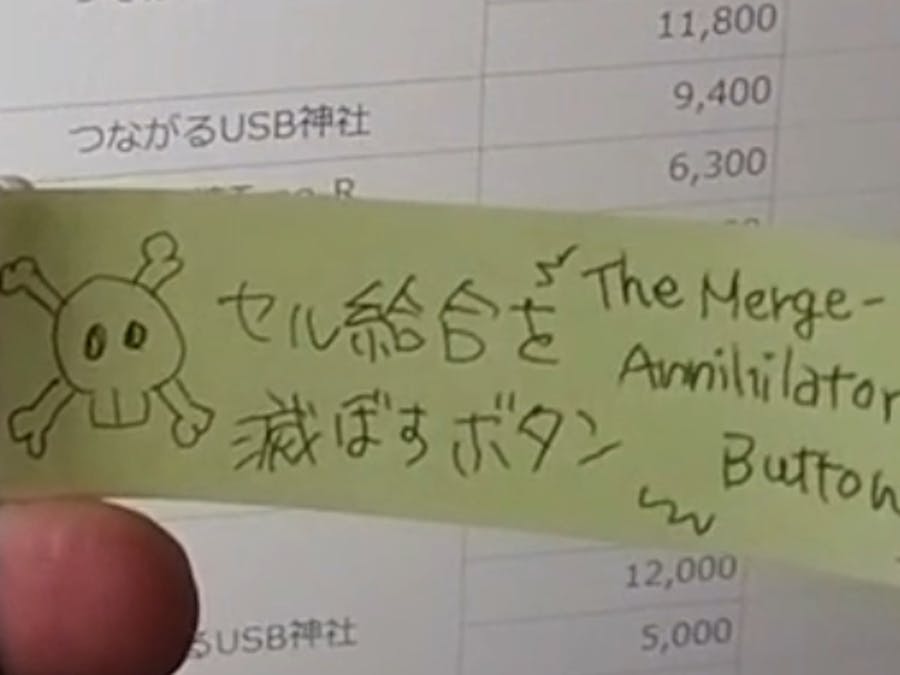 11,800
つながるUSB神社 9,400
6,300
セル給合を
滅ぼすボタン
The Merge-
Annihilator
Button
12,000
るUSB神社 5,000